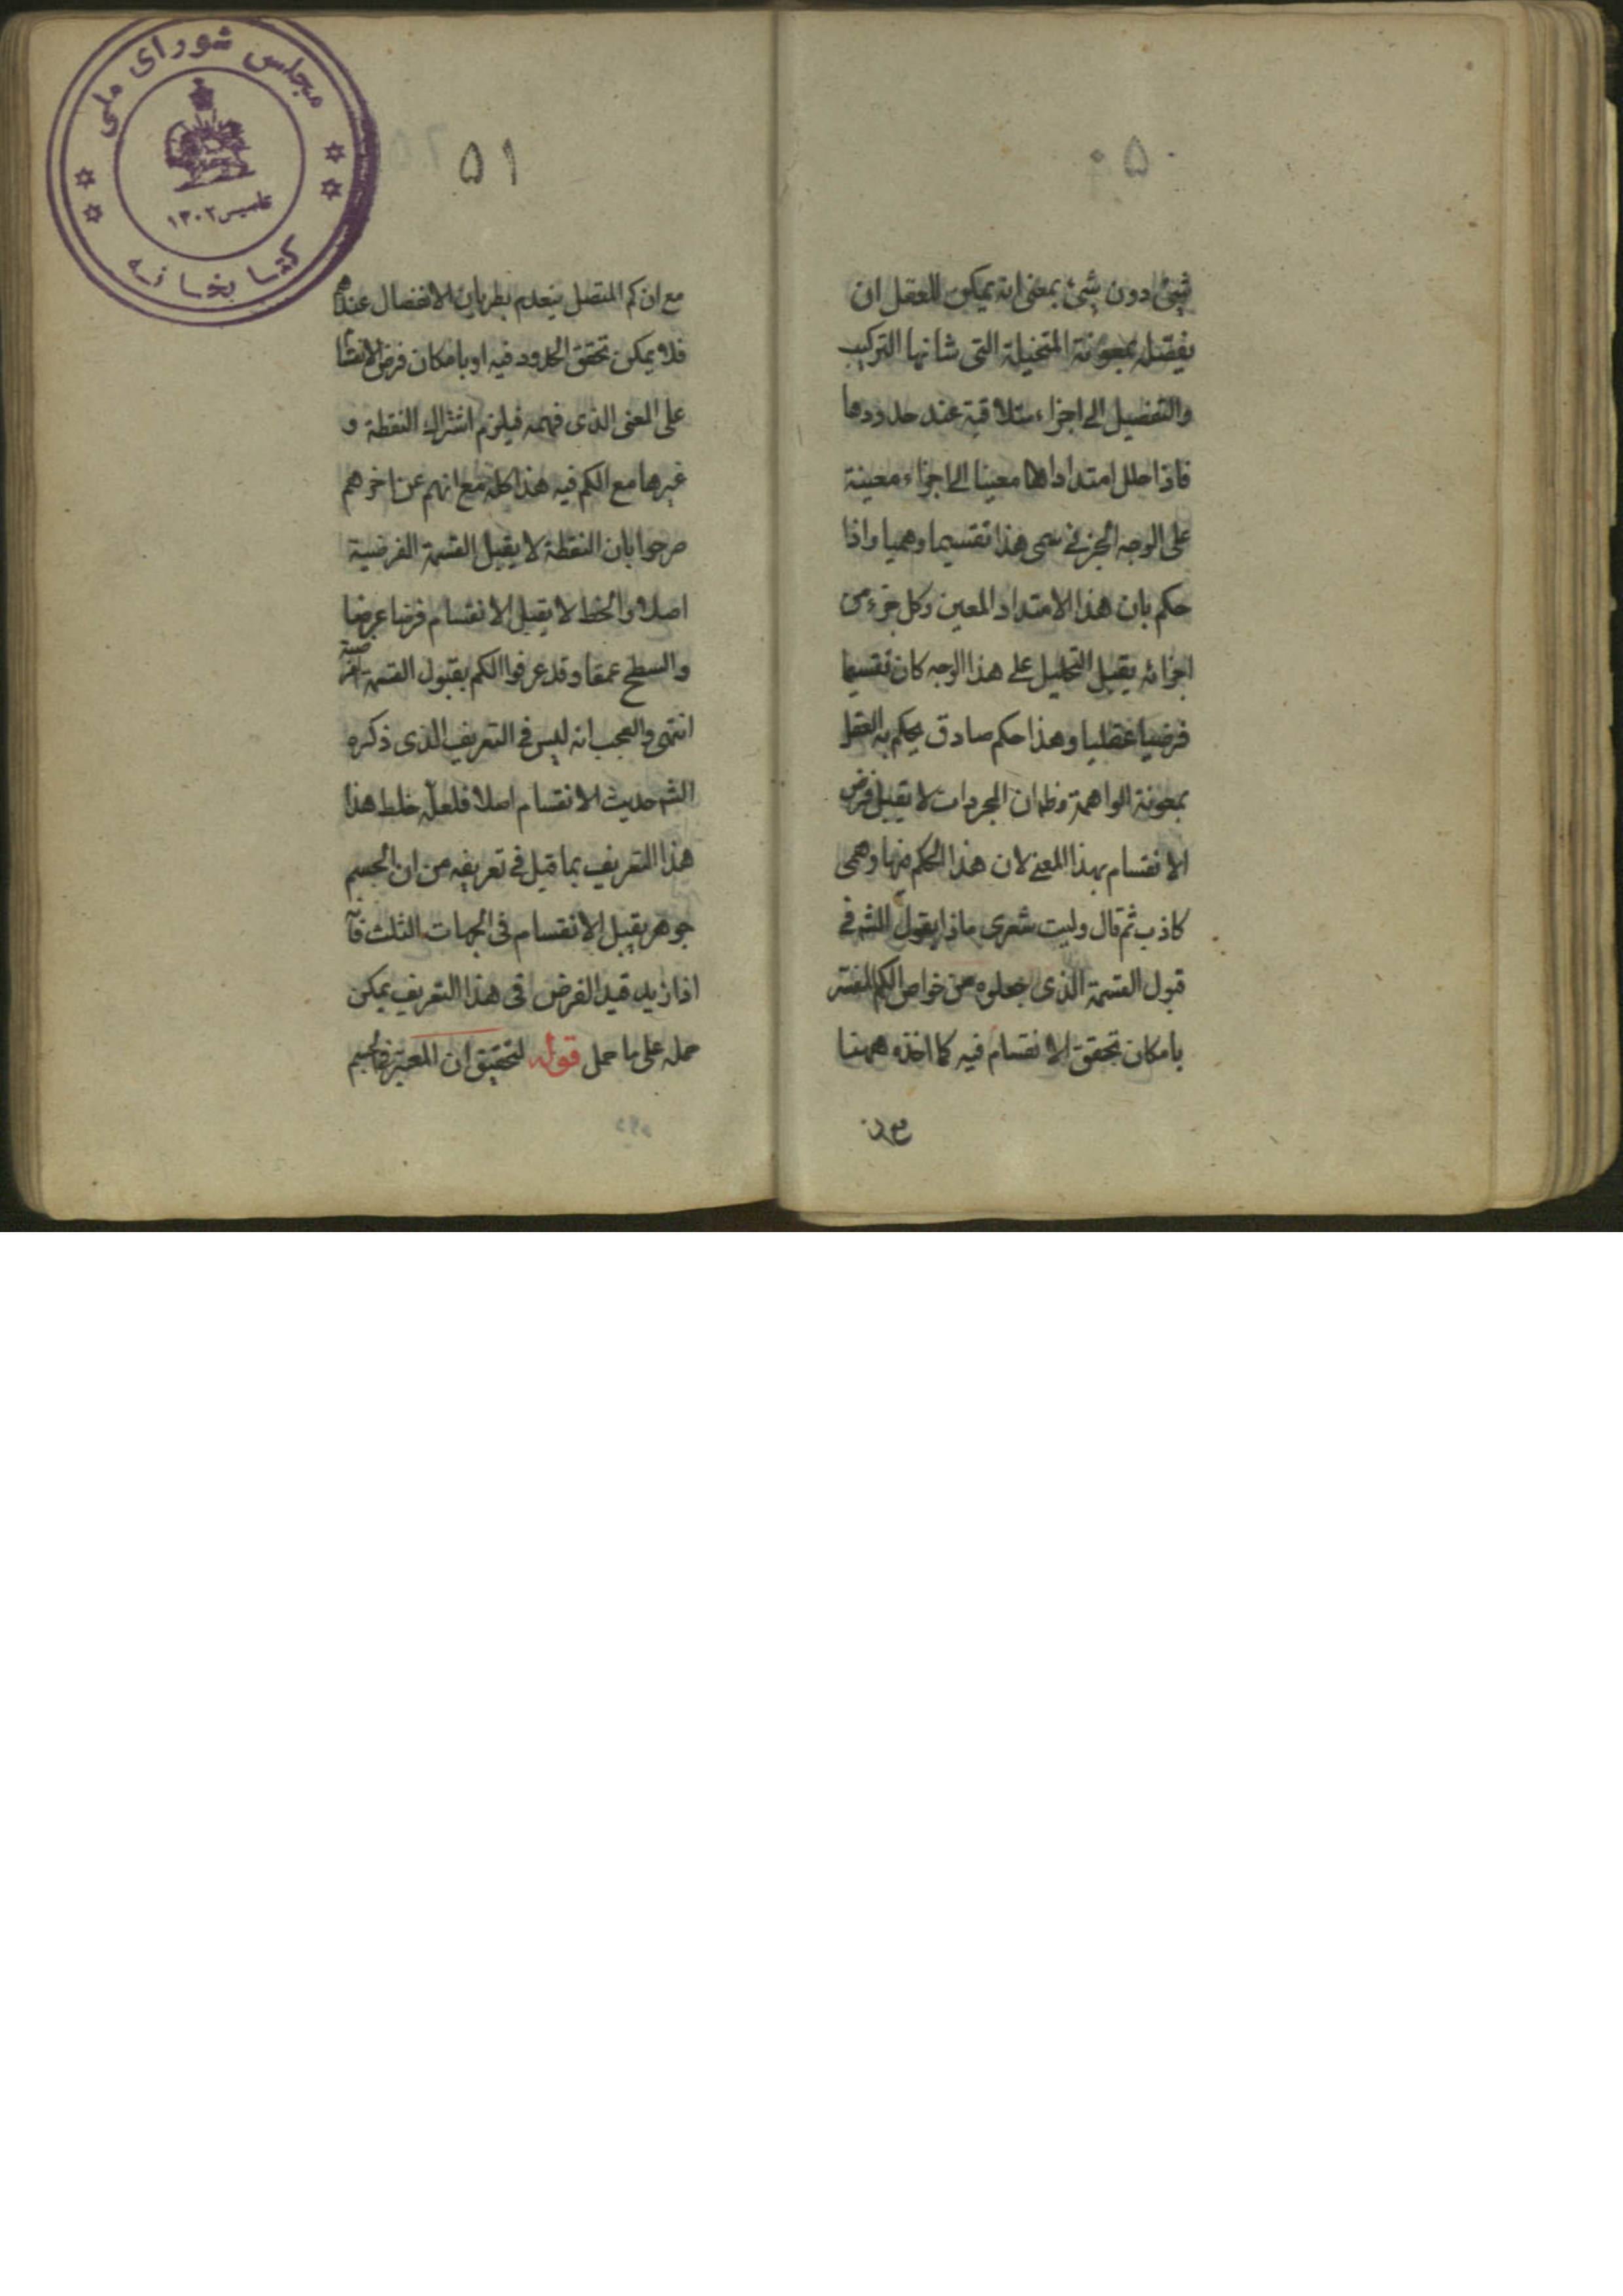 ۵۰
شیئ دون شیئ بمعنی انه یمکن للعقل ان
یفصله بمعونة المتخیلة التی شانها الترکیب
والتفصیل الی اجزاء متلاقیة عند حدودها
فاذا حلل امتدادا ما معینا الی اجزاء معینة
علی الوجه الجزئی سمی هذا تقسیما وهمیا واذا
حکم بان هذا الامتداد المعین وکل جزء من
اجزائه یقبل التحلیل علی هذا الوجه کان تقسیما
فرضیا عقلیا وهذا حکم صادق یحکم به العقل
بمعونة الواهمة وظ ان المجردات لا یقبل فرض
الانقسام بهذا المعنی لان هذا الحکم فیها وهمی
کاذب ثم قال ولیت شعری ماذا یقول الشم فی
قبول القسمة الذی جعلوه من خواص الکم
بامکان تحقق الانقسام فیه کما اخذه ههنا
مع ان
۵۱
مع ان کم المتصل ینعدم بطریان الانفصال عندهم
فلا یمکن تحقق الحدود فیه او بامکان فرض الانقسام
علی المعنی الذی فهمه فیلزم اشتراک النقطة و
غیرها مع الکم فیه هذا کله مع انهم عن اخرهم
صرحوا بان النقطة لا یقبل القسمة الفرضیة
اصلا والخط لا یقبل الانقسام فرضا عرضا
والسطح عمقا وقد عرفوا الکم بقبول القسمة الفرضیة
انتهی والعجب انه لیس فی التعریف الذی ذکره
الشم حدیث الانقسام اصلا فلعله خلط هذا
هذا التعریف بما قیل فی تعریفه من ان الجسم
جوهر یقبل الانقسام فی الجهات الثلث فانه
اذا زید قید الفرض فی هذا التعریف یمکن
حمله علی ما حمل قوله لتحقیق ان المعتبر فی الجسم
مجلس شورای ملی
تاسیس ۱۳۰۲
کتابخانه